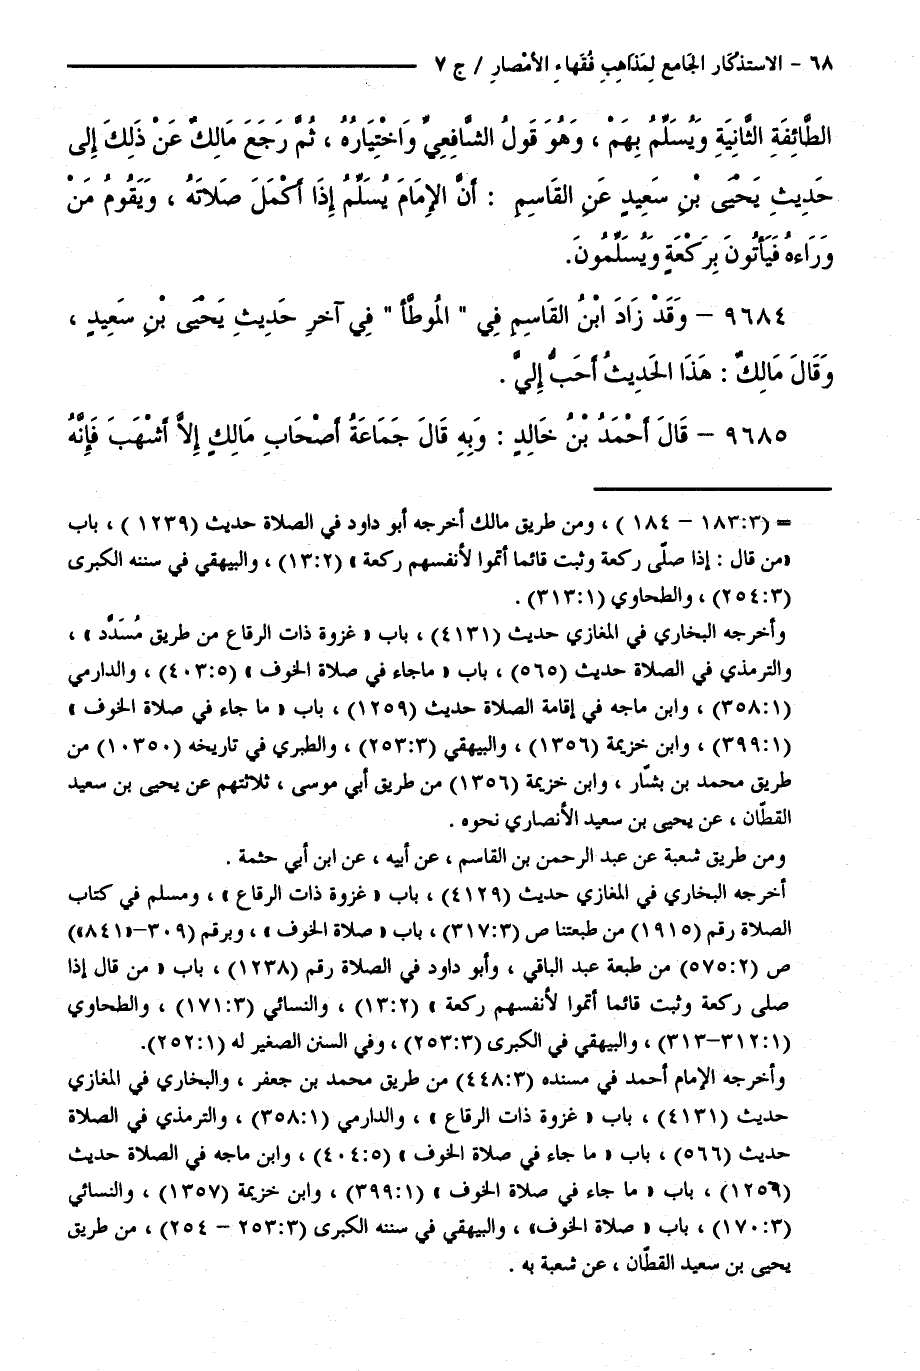 ٦٨ - الاستذكار الجَامع لِمَذَاهِبِ فُقَهاءِ الأمْصارِ / ج ٧
الطَّائِفَةِ الثَّانِيَةِ وَيُسَلِّمُ بِهَمْ ، وَهُوَ قَولُ الشَّافِعِيِّ وَاخْتِيَارُهُ ، ثُمَّ رَجَعَ مَالِكٌ عَنْ ذَلِكَ إِلى
حَدِيثِ يَحْيَى بْنِ سَعِيدٍ عَنِ القَاسِمِ : أَنَّ الإِمَامَ يُسَلِّمُ إِذَا أَكْمَلَ صَلاتَهُ ، وَيَقُومُ مَنْ
وَرَاءهُ فَيَأتُونَ بِرَكْعَةٍ وَيُسَلِّمُونَ.
٩٦٨٤ - وَقَدْ زَادَ ابْنُ القَاسِمِ فِي " المُوطَّأ " فِي آخرِ حَدِيثِ يَحْيَى بْنِ سَعِيدٍ ،
وَقَالَ مَالِكٌ : هَذَا الحَدِيثُ أَحَبُّ إِليَّ .
٩٦٨٥ - قَالَ أَحْمَدُ بْنُ خَالِدٍ : وَبِهِ قَالَ جَمَاعَةُ أَصْحَابِ مَالِكٍ إِلاَّ أَشْهَبَ فَإِنَّهُ
= (١٨٣:٣ - ١٨٤ ) ، ومن طريق مالك أخرجه أبو داود في الصلاة حديث (١٢٣٩ ) ، باب
«من قال : إذا صلّى ركعة وثبت قائما أتموا لأنفسهم ركعة » (١٣:٢) ، والبيهقي في سننه الكبرى
(٢٥٤:٣) ، والطحاوي (٣١٣:١) .
وأخرجه البخاري في المغازي حديث (٤١٣١) ، باب « غزوة ذات الرقاع من طريق مُسَدَّد » ،
والترمذي في الصلاة حديث (٥٦٥) ، باب « ماجاء في صلاة الخوف » (٤٠٣:٥) ، والدارمي
(٣٥٨:١) ، وابن ماجه في إقامة الصلاة حديث (١٢٥٩) ، باب « ما جاء في صلاة الخوف »
(٣٩٩:١) ، وابن خزيمة (١٣٥٦) ، والبيهقي (٢٥٣:٣) ، والطبري في تاريخه (١٠٣٥٠) من
طريق محمد بن بشّار ، وابن خزيمة (١٣٥٦) من طريق أبي موسى ، ثلاثتهم عن يحيى بن سعيد
القطّان ، عن يحيى بن سعيد الأنصاري نحوه .
ومن طريق شعبة عن عبد الرحمن بن القاسم ، عن أبيه ، عن ابن أبي حثمة .
أخرجه البخاري في المغازي حديث (٤١٢٩) ، باب « غزوة ذات الرقاع » ، ومسلم في كتاب
الصلاة رقم (١٩١٥) من طبعتنا ص (٣١٧:٣) ، باب « صلاة الخوف » ، وبرقم (٣٠٩-«٨٤١»)
ص (٥٧٥:٢) من طبعة عبد الباقي ، وأبو داود في الصلاة رقم (١٢٣٨) ، باب « من قال إذا
صلى ركعة وثبت قائما أتموا لأنفسهم ركعة » (١٣:٢) ، والنسائي (١٧١:٣) ، والطحاوي
(٣١٢:١-٣١٣) ، والبيهقي في الكبرى (٢٥٣:٣) ، وفي السنن الصغير له (٢٥٢:١).
وأخرجه الإمام أحمد في مسنده (٤٤٨:٣) من طريق محمد بن جعفر ، والبخاري في المغازي
حديث (٤١٣١) ، باب « غزوة ذات الرقاع » ، والدارمي (٣٥٨:١) ، والترمذي في الصلاة
حديث (٥٦٦) ، باب « ما جاء في صلاة الخوف » (٤٠٤:٥) ، وابن ماجه في الصلاة حديث
(١٢٥٩) ، باب « ما جاء في صلاة الخوف » (٣٩٩:١) ، وابن خزيمة (١٣٥٧) ، والنسائي
(١٧٠:٣) ، باب « صلاة الخوف» ، والبيهقي في سننه الكبرى (٢٥٣:٣ - ٢٥٤) ، من طريق
يحيى بن سعيد القطّان ، عن شعبة به .